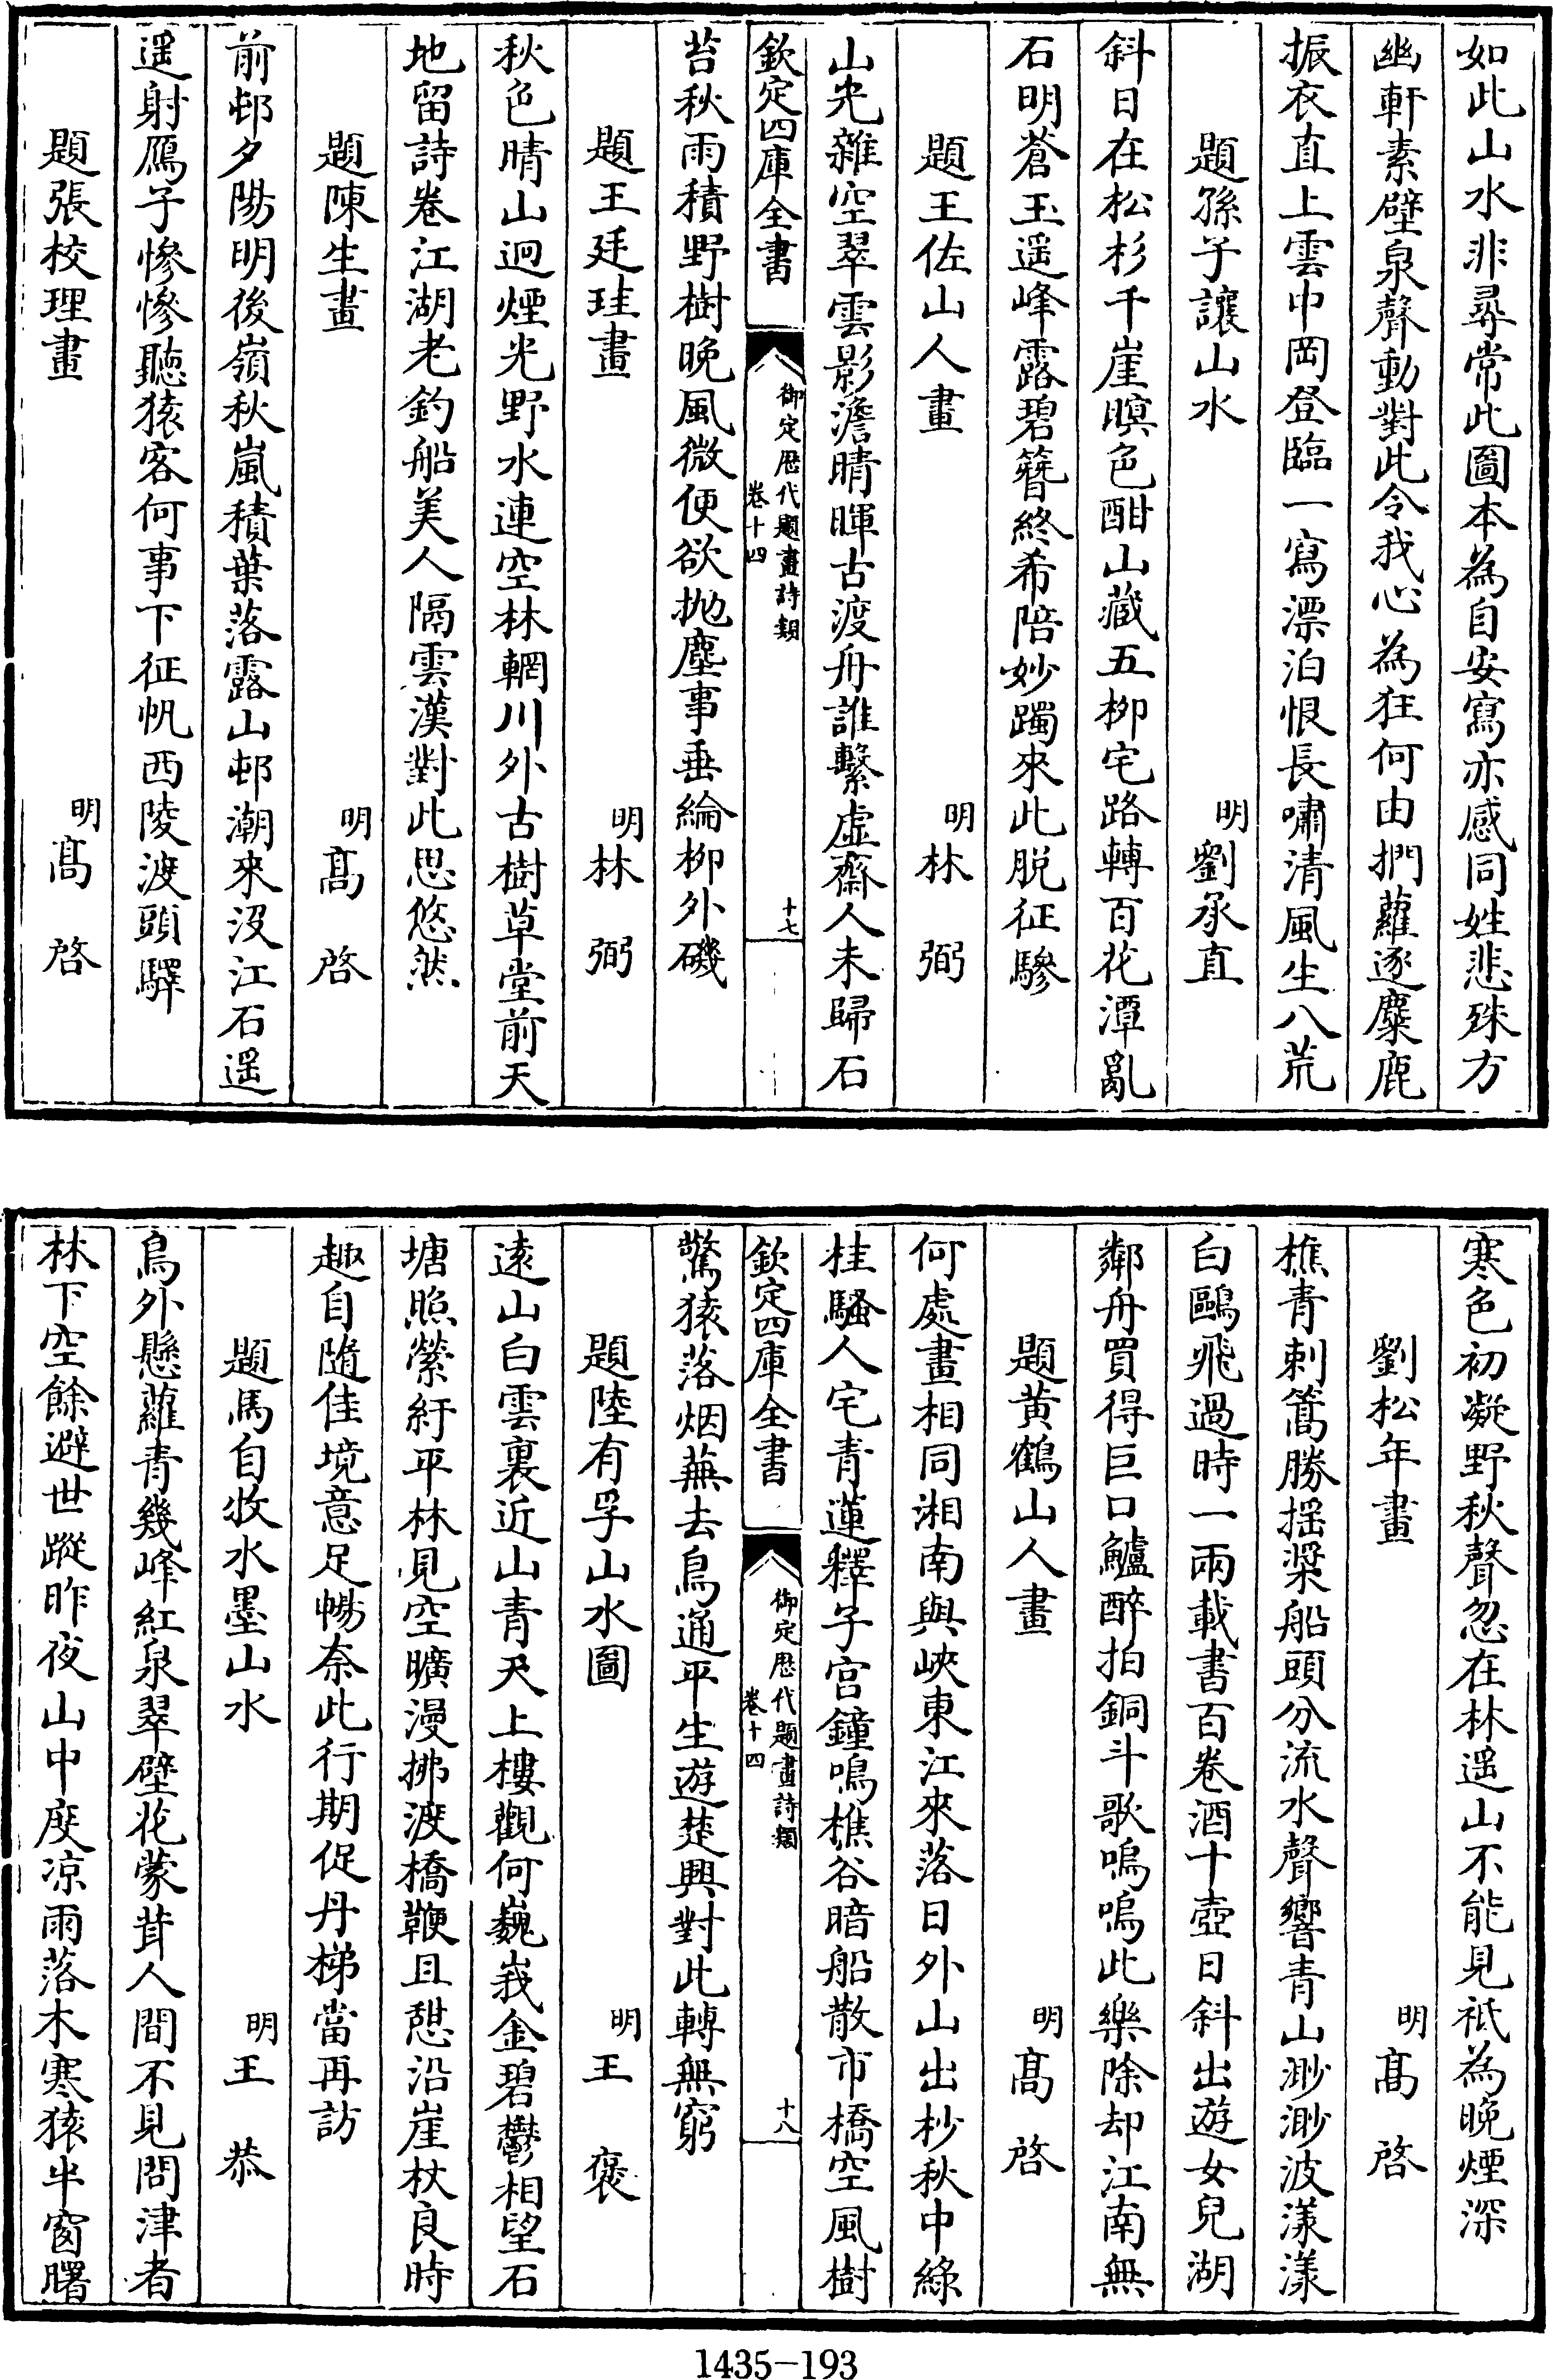 如此山水非尋常此圖本為自安寫亦感同姓悲殊方
幽軒素壁泉聲動對此令我心為狂何由捫蘿逐麋鹿
振衣直上雲中岡登臨一寫漂泊恨長嘯清風生八荒
題孫子讓山水 明劉承直
斜日在松杉千崖暝色酣山藏五柳宅路轉百花潭亂
石明蒼玉遥峰露碧簪終希陪妙躅來此脱征驂
題王佐山人畫 明林弼
山光雜空翠雲影澹晴暉古渡舟誰繫虚齋人未歸石
欽定四庫全書 御定歴代題畫詩類 卷十四 十七
苔秋雨積野樹晚風微便欲抛塵事垂綸柳外磯
題王廷珪畫 明林弼
秋色晴山迥煙光野水連空林輞川外古樹草堂前天
地留詩卷江湖老釣船美人隔雲漢對此思悠然
題陳生畫 明髙啓
前邨夕陽明後嶺秋嵐積葉落露山邨潮來沒江石遥
遥射鴈子慘慘聽猿客何事下征帆西陵渡頭驛
題張校理畫 明髙啓
寒色初凝野秋聲忽在林遥山不能見祇為晚煙深
劉松年畫 明髙啓
樵青刺篙勝揺槳船頭分流水聲響青山渺渺波漾漾
白鷗飛過時一兩載書百卷酒十壺日斜出遊女兒湖
鄰舟買得巨口鱸醉拍銅斗歌嗚嗚此樂除却江南無
題黄鶴山人畫 明髙啓
何處畫相同湘南與峽東江來落日外山出杪秋中綠
桂騷人宅青蓮釋子宫鐘鳴樵谷暗船散市橋空風樹
欽定四庫全書 御定歴代題畫詩類 卷十四 十八
驚猿落烟蕪去鳥通平生遊楚興對此轉無窮
題陸有孚山水圖 明王褒
遠山白雲裏近山青天上樓觀何巍峩金碧鬱相望石
塘照縈紆平林見空曠漫拂渡橋鞭且憩沿崖杖良時
趣自隨佳境意足暢奈此行期促丹梯當再訪
題馬自牧水墨山水 明王恭
鳥外懸蘿青幾峰紅泉翠壁花蒙茸人間不見問津者
林下空餘避世蹤昨夜山中度凉雨落木寒猿半窗曙
1435-193